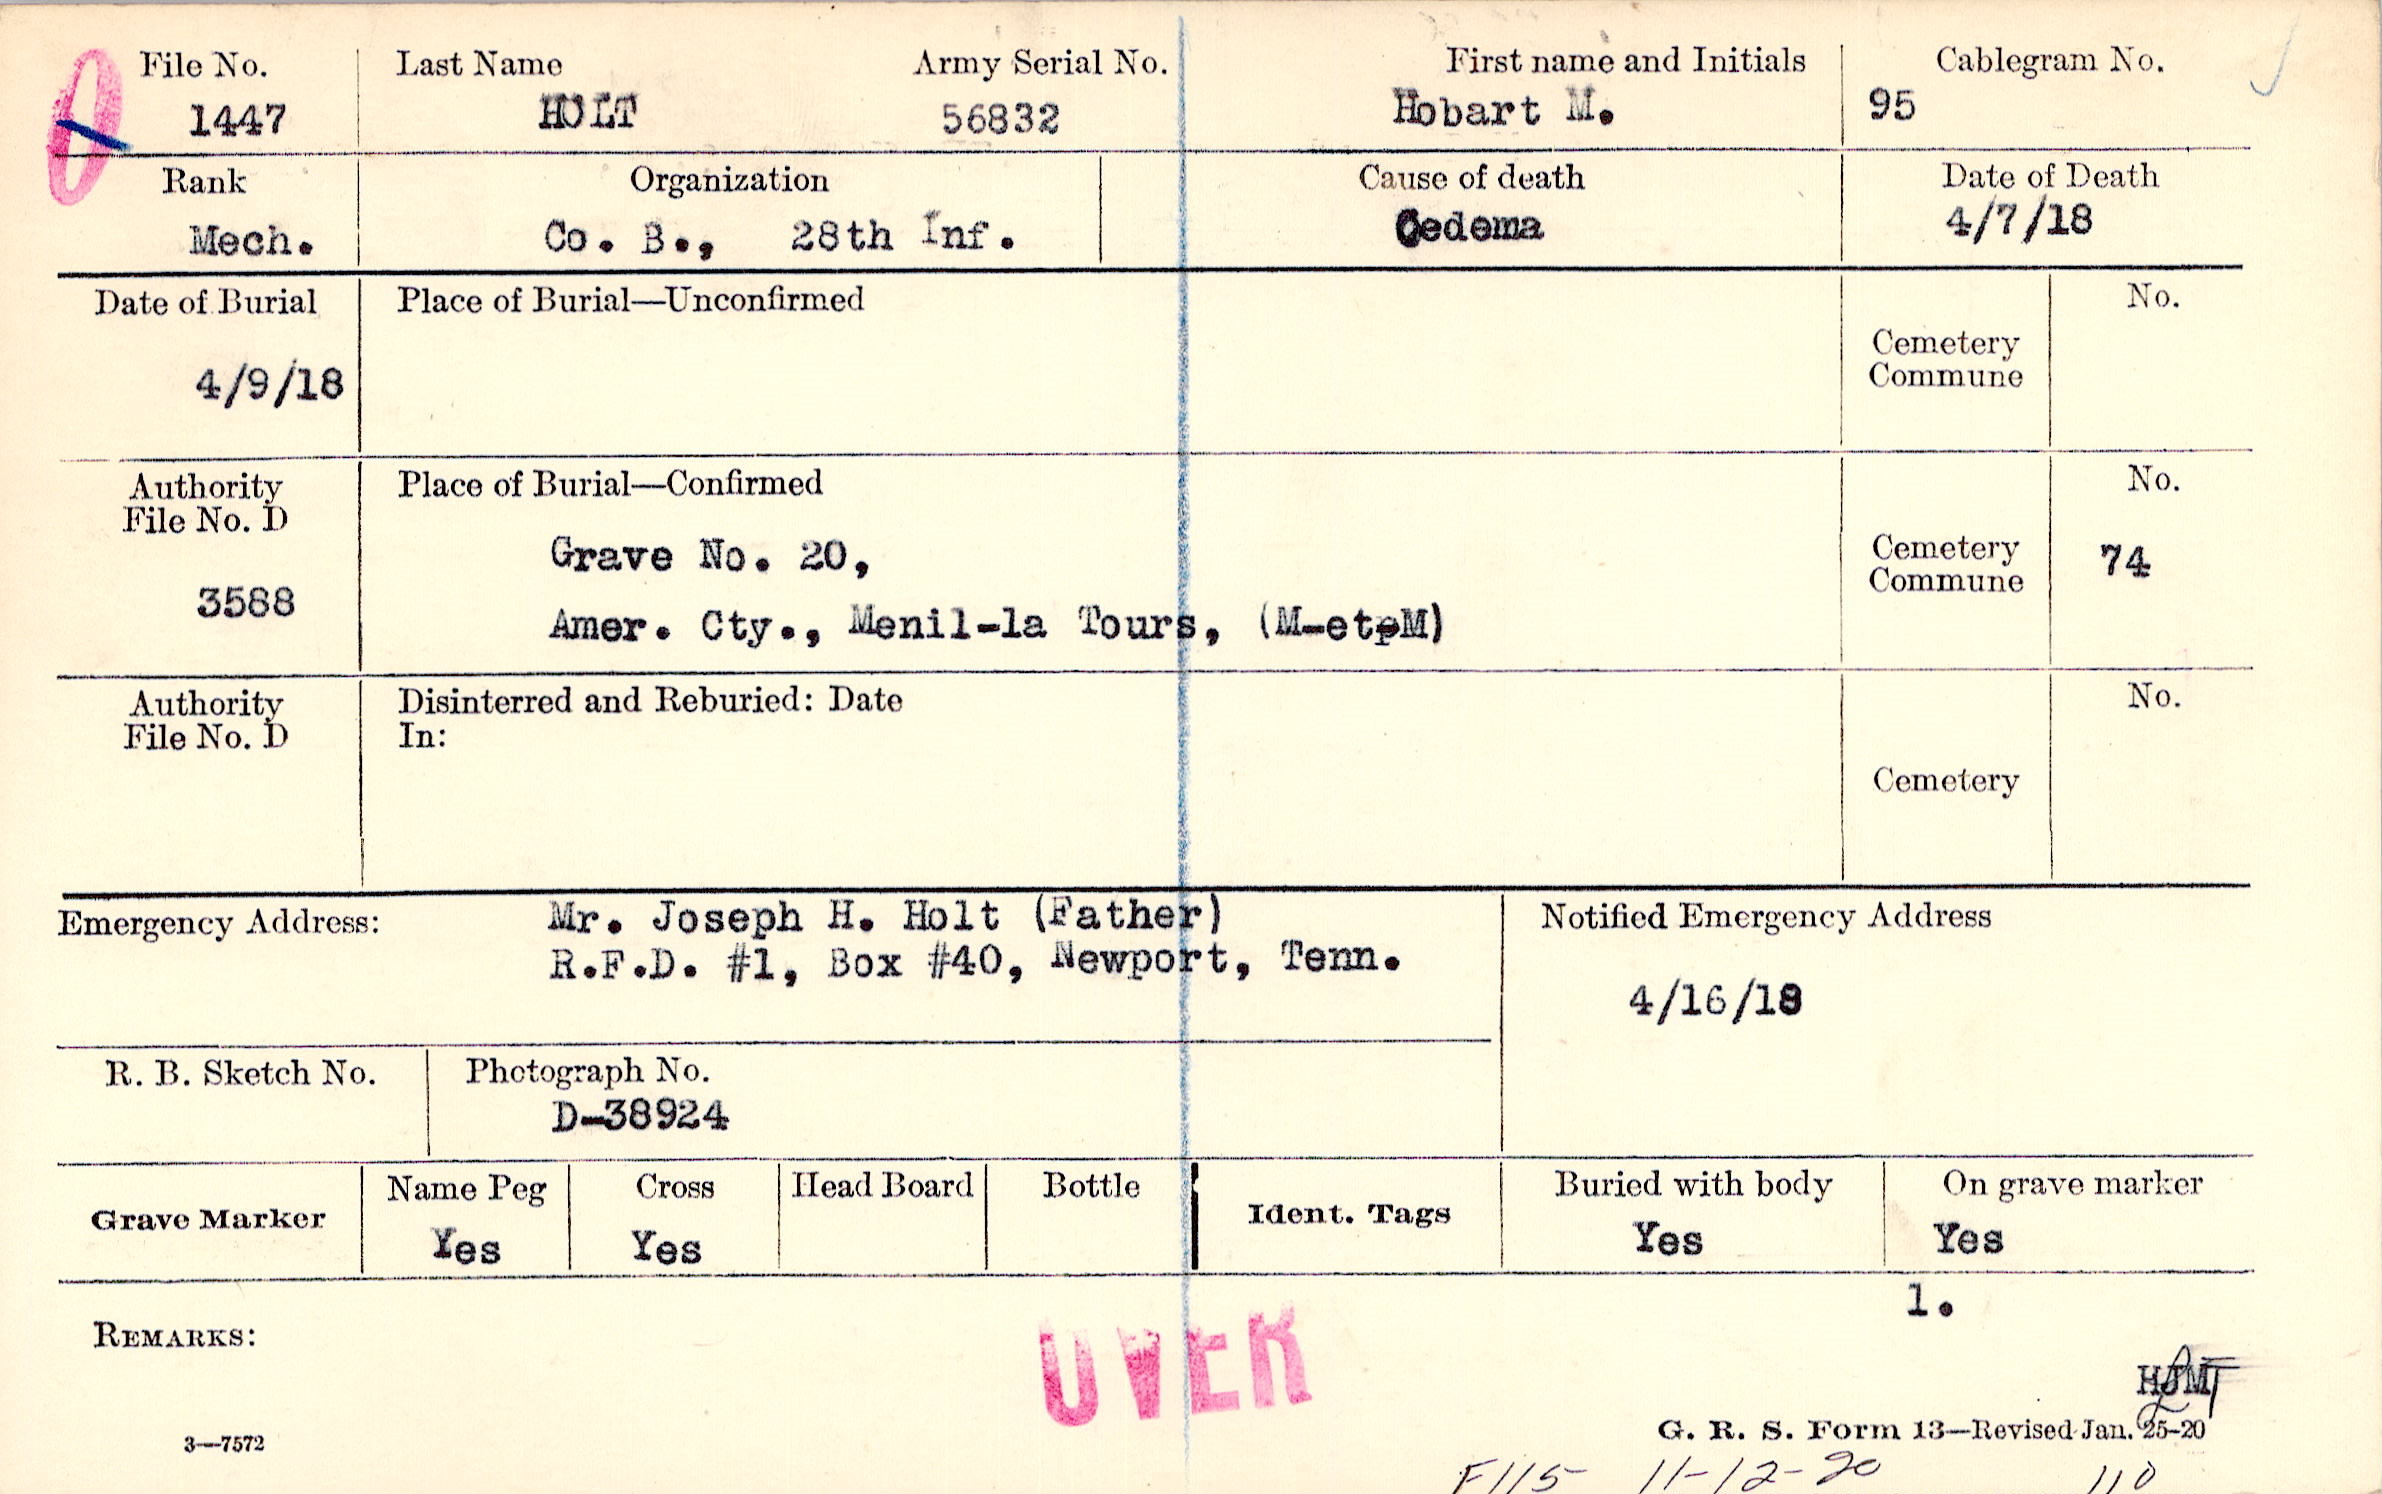 File No. Last Name Army Serial No. First name and Initials Cablegram No.
1447 HOLT 56832 Hobart M. 95
Rank Organization Cause of death Date of Death
Mech. Co. B., 28th Inf. Oedema 4/7/18
Date of Burial Place of Burial—Unconfirmed No.
Cemetery
Commune
4/9/18
Authority Place of Burial—Confirmed No.
File No. D
Grave No. 20, Cemetery 74
Commune
3588
Amer. Cty., Menil-la Tours, (M-et-M)
Authority Disinterred and Reburied: Date No.
File No. D In:
Cemetery
Emergency Address: Mr. Joseph H. Holt (Father) Notified Emergency Address
R.F.D. #1, Box #40, Newport, Tenn.
4/16/18
R. B. Sketch No. Photograph No.
D-38924
Grave Marker Name Peg Cross Head Board Bottle Ident. Tags Buried with body On grave marker
Yes Yes Yes Yes
1.
REMARKS:
OVER
HJM
3—7572 G. R. S. Form 13—Revised Jan. 25-20
F115 11-12-20 110